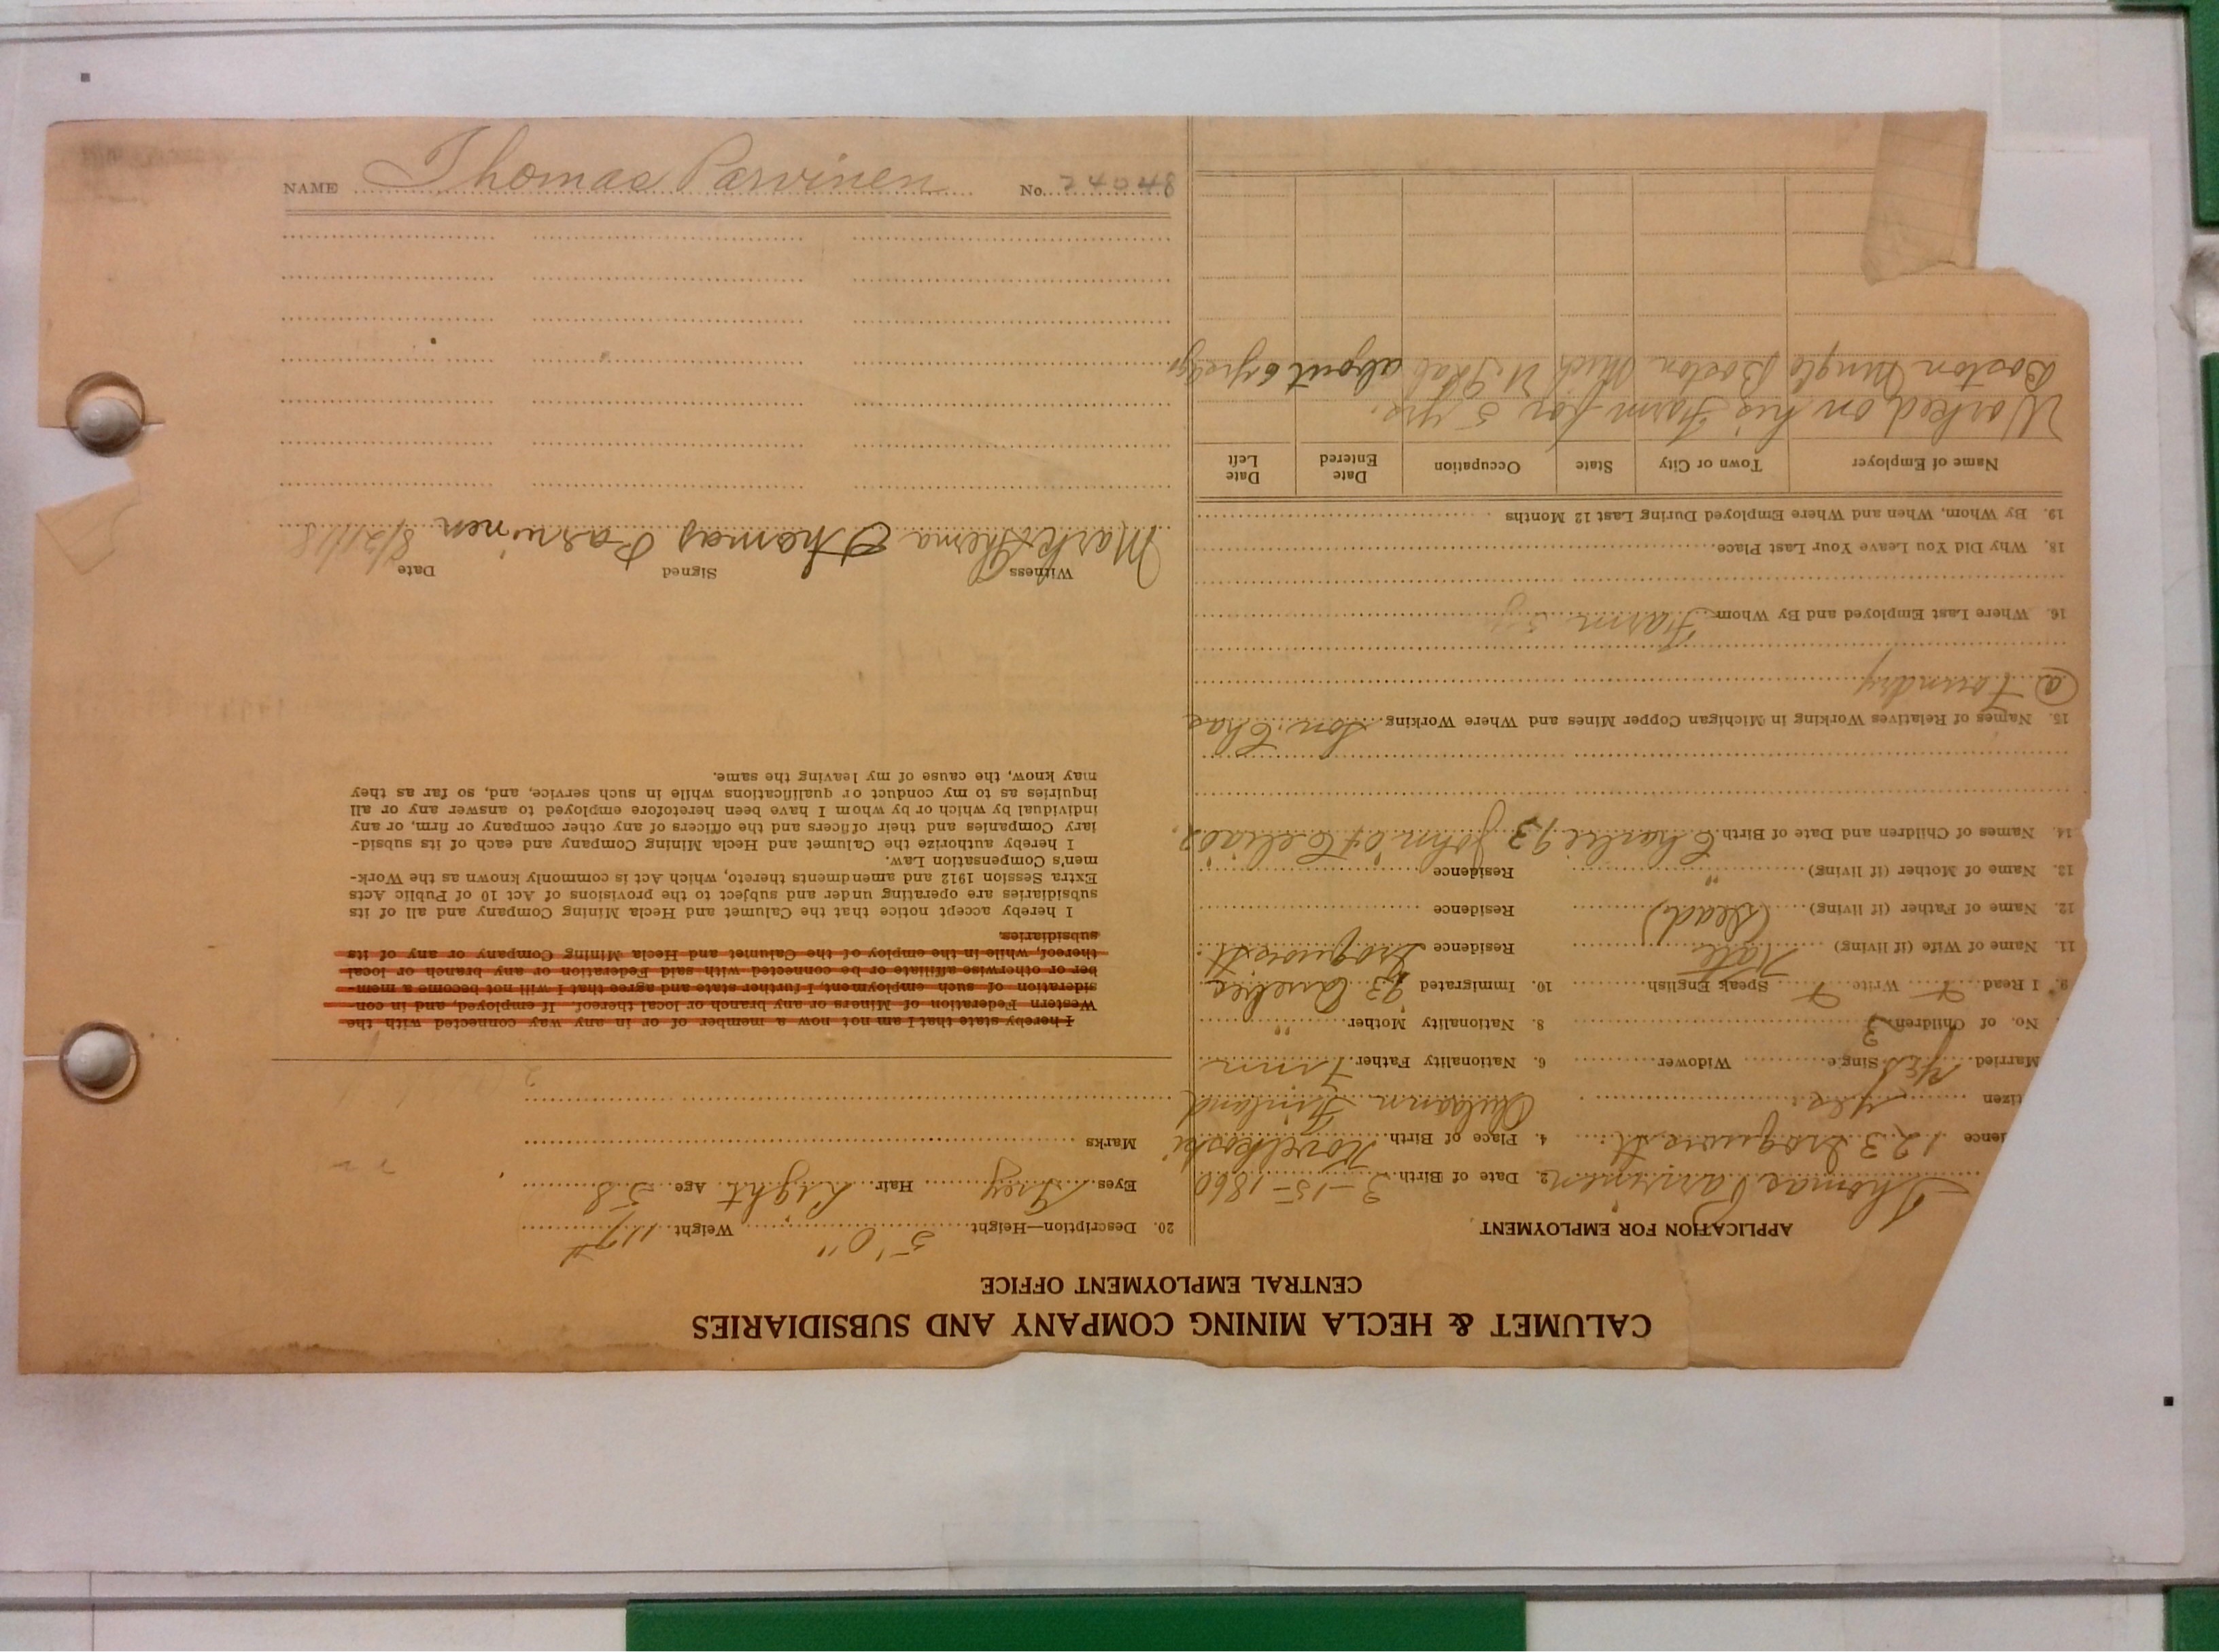 CALUMET & HECLA MINING COMPANY AND SUBSIDIARIES
CENTRAL EMPLOYMENT OFFICE
APPLICATION FOR EMPLOYMENT
Thomas Parvinen 2. Date of Birth 3-15-1860
dence 123 Iroquois St. 4. Place of Birth
tizen Yes Finland
Married Yes Single Widower 6. Nationality Father Finn
No. of Children 3 8. Nationality Mother "
9. I Read Write Speak English 10. Immigrated 93
11. Name of Wife (if living) Kate Residence Iroquois St.
12. Name of Father (if living) (Dead) Residence
13. Name of Mother (if living) " Residence "
14. Names of Children and Date of Birth Charlie 93 John 04 Celia 02
15. Names of Relatives Working in Michigan Copper Mines and Where Working Son. Chas
@ Foundry
16. Where Last Employed and By Whom Farm 5 y
18. Why Did You Leave Your Last Place
19. By Whom, When and Where Employed During Last 12 Months
Name of Employer Town or City State Occupation Date Entered Date Left
Worked on his Farm for 5 yrs.
Boston Boston Mich about 6 yrs ago
20. Description—Height 5' 0" Weight 117#
Eyes Grey Hair Light Age 58
Marks
I hereby state that I am not now a member of or in any way connected with the
Western Federation of Miners or any branch or local thereof. If employed, and in con-
sideration of such employment, I further state and agree that I will not become a mem-
ber or otherwise affiliate or be connected with said Federation or any branch or local
thereof, while in the employ of the Calumet and Hecla Mining Company or any of its
subsidiaries.
I hereby accept notice that the Calumet and Hecla Mining Company and all of its
subsidiaries are operating under and subject to the provisions of Act 10 of Public Acts
Extra Session 1912 and amendments thereto, which Act is commonly known as the Work-
men's Compensation Law.
I hereby authorize the Calumet and Hecla Mining Company and each of its subsid-
iary Companies and their officers and the officers of any other company or firm, or any
individual by which or by whom I have been heretofore employed to answer any or all
inquiries as to my conduct or qualifications while in such service, and, so far as they
may know, the cause of my leaving the same.
Witness Signed Date
Thomas Parvinen 8/21/18
NAME Thomas Parvinen No. 24048